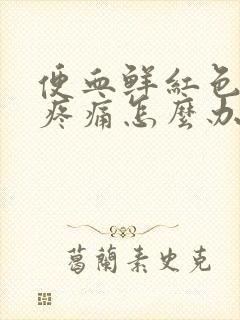 便血鮮紅色
疼痛怎麼办
葛蘭素史克